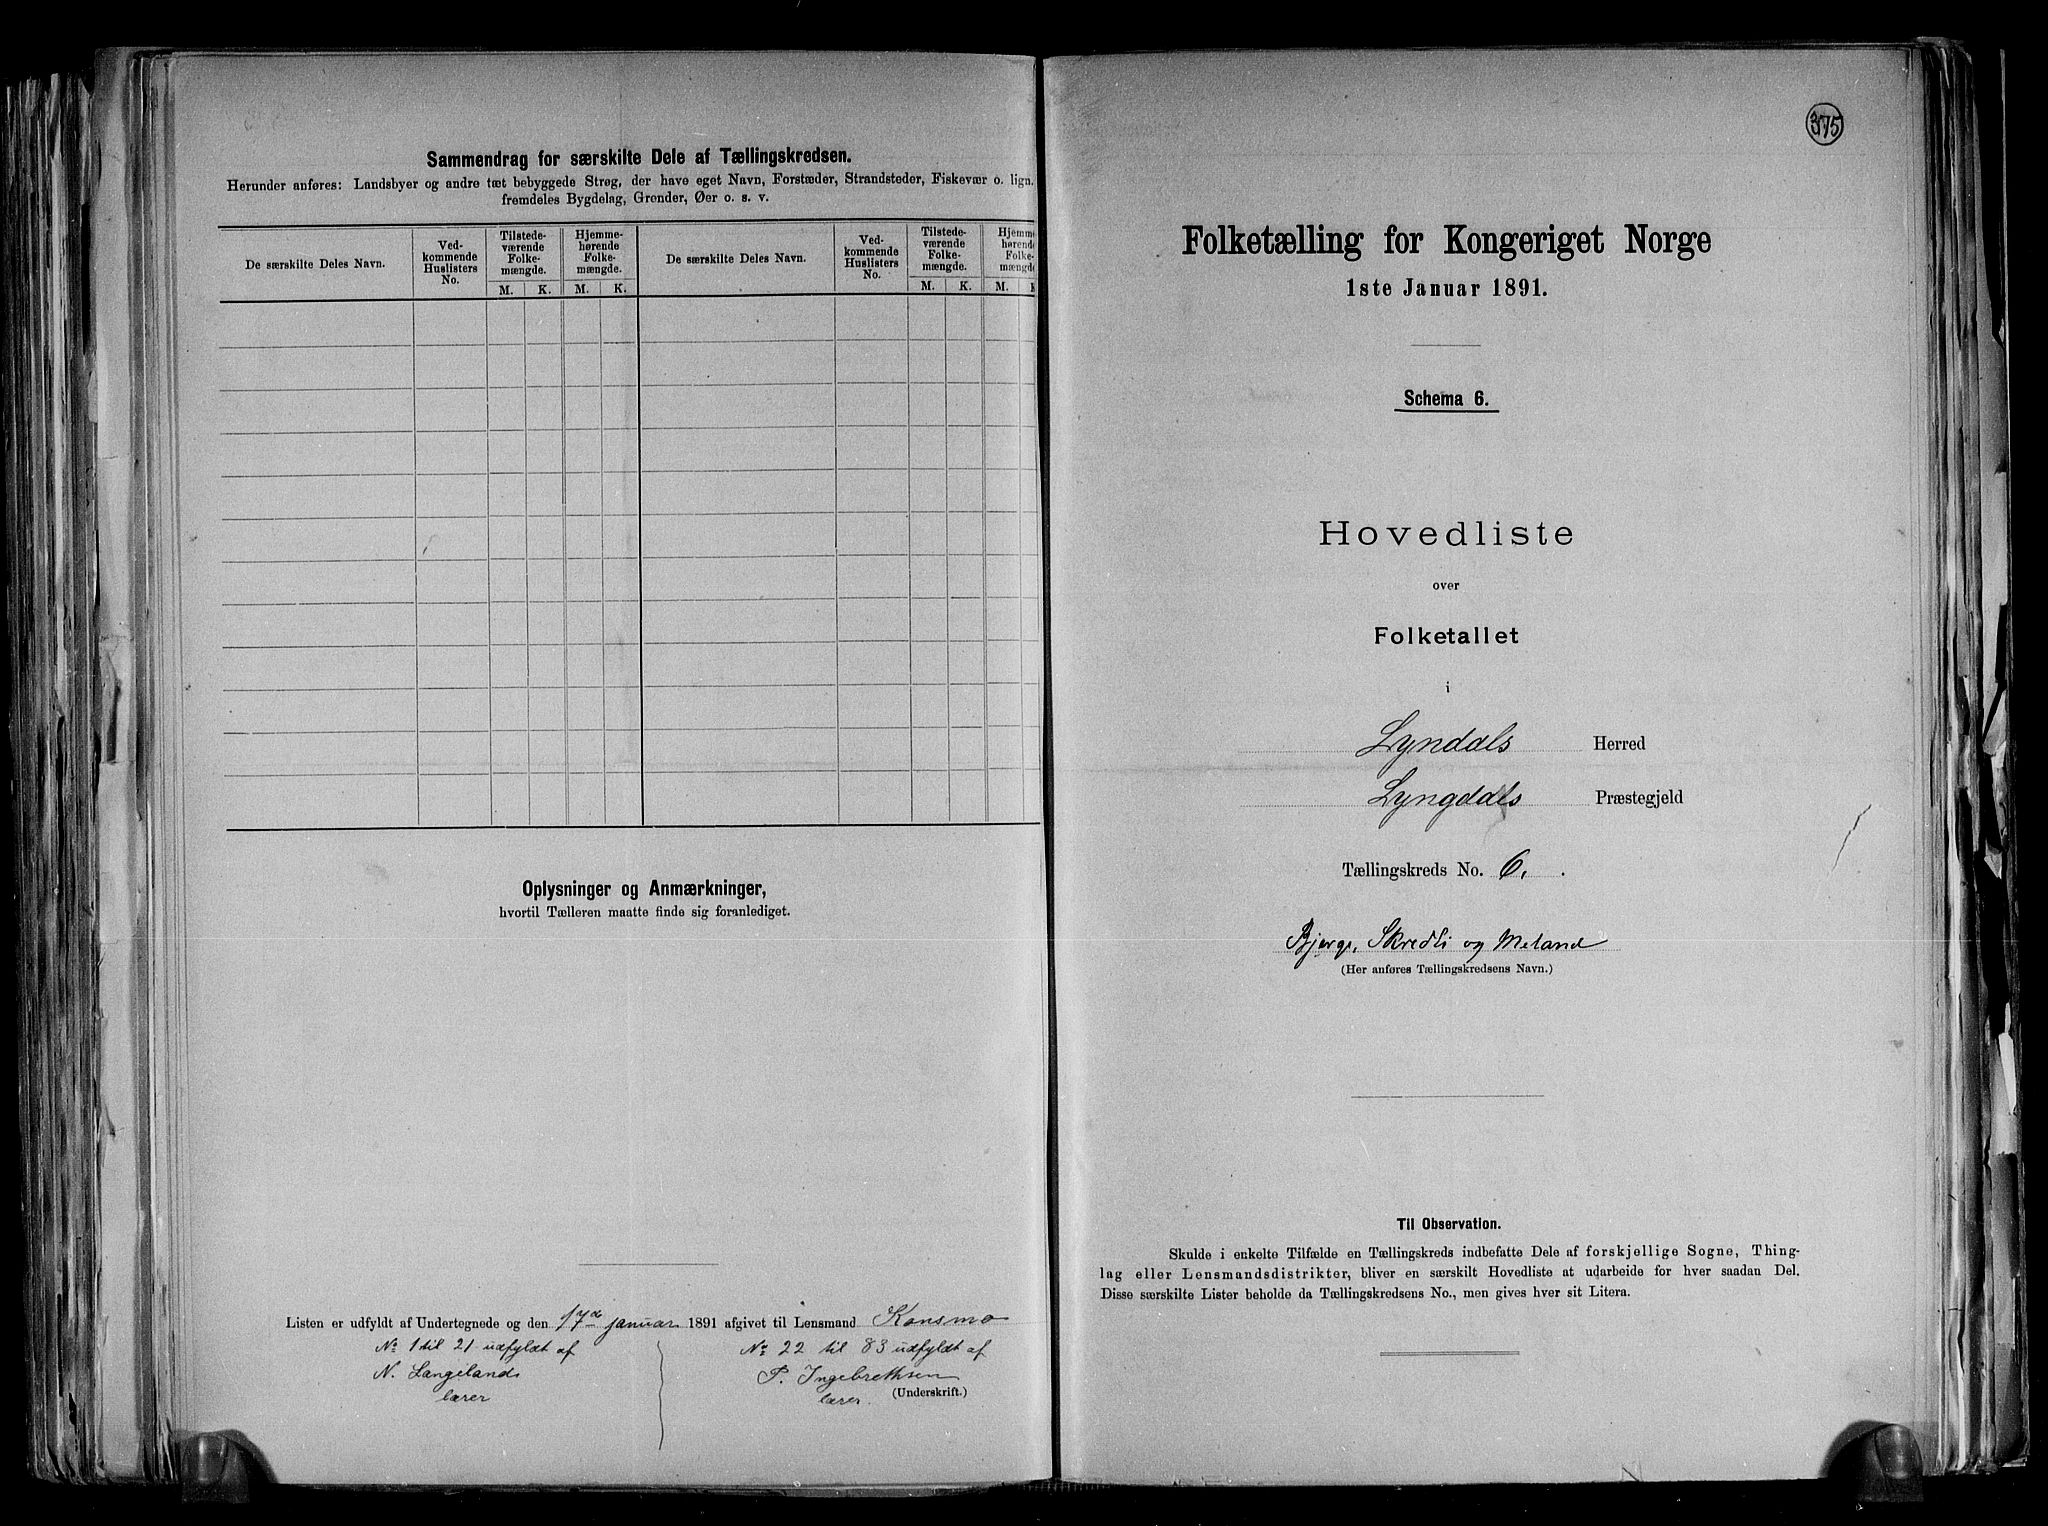 Sammendrag for særskilte Dele af Tællingskredsen.
Herunder anføres: Landsbyer og andre tæt bebyggede Strøg, der have eget Navn, Forstæder, Strandsteder, Fiskevær o. lign.
fremdeles Bygdelag, Grender, Øer o. s. v.
De særskilte Deles Navn.
Ved-
kommende
Huslisters
No.
Tilstede-
værende
Folke-
mængde.
M. K.
Hjemme-
hørende
Folke-
mængde.
M. K.
De særskilte Deles Navn.
Ved-
kommende
Huslisters
No.
Tilstede-
værende
Folke-
mængde.
M. K.
Hjemme
hørende
Folke-
mængde
M.
Oplysninger og Anmærkninger,
hvortil Tælleren maatte finde sig foranlediget.
Listen er udfyldt af Undertegnede og den 17de januar 1891 afgivet til Lensmand Konsmo
No 1 til 21 udfyldt af
N. Langeland
lærer
No 22 til 83 udfyldt af
P. Ingebrethsen
lærer.
(Underskrift.)
375
Folketælling for Kongeriget Norge
1ste Januar 1891.
Schema 6.
Hovedliste
over
Folketallet
i
Lyndals Herred
Lyngdals Præstegjeld
Tællingskreds No. 6.
Bjerge, Skredli og Meland
(Her anføres Tællingskredsens Navn.)
Til Observation.
Skulde i enkelte Tilfælde en Tællingskreds indbefatte Dele af forskjellige Sogne, Thing-
lag eller Lensmandsdistrikter, bliver en særskilt Hovedliste at udarbeide for hver saadan Del.
Disse særskilte Lister beholde da Tællingskredsens No., men gives hver sit Litera.